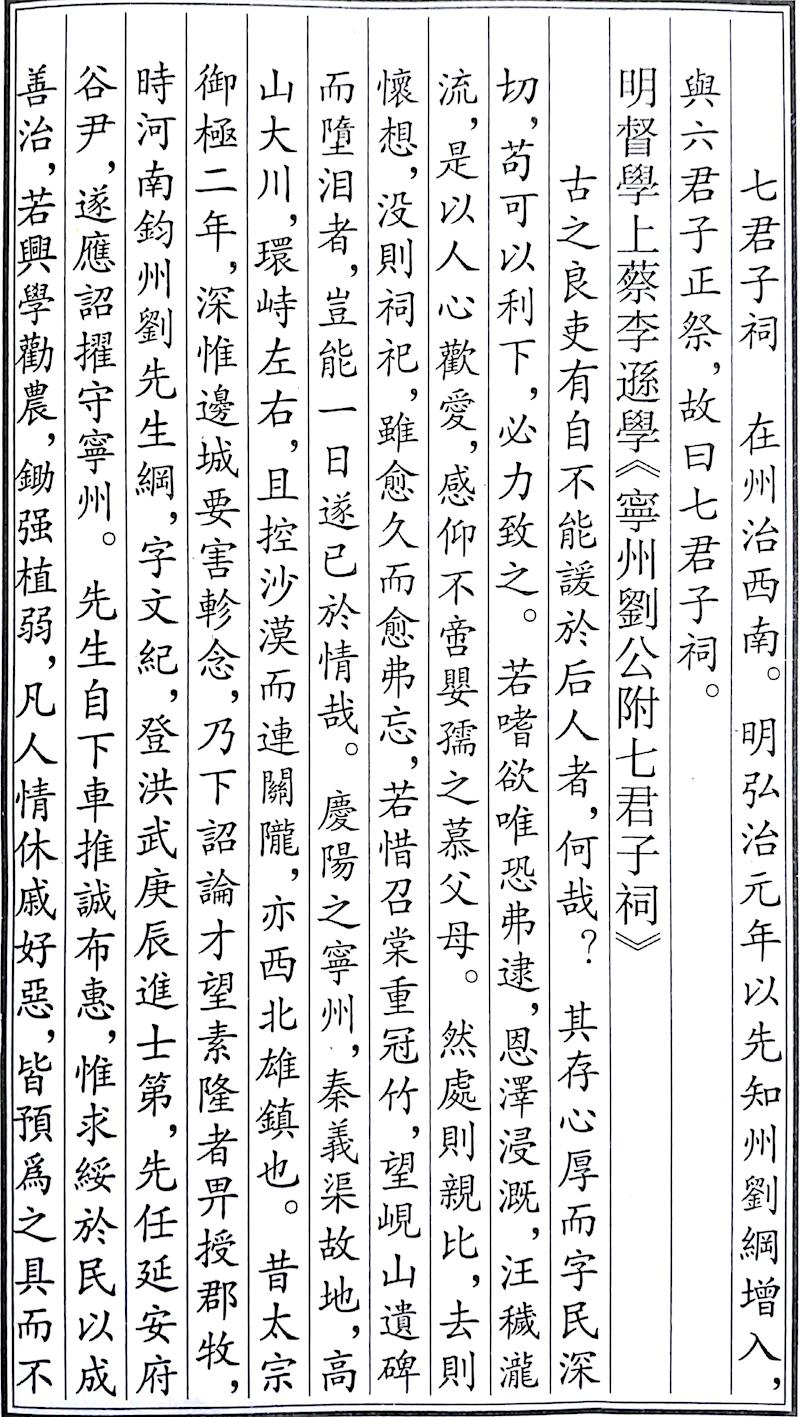 七君子祠　在州治西南。明弘治元年以先知州劉綱增入，
與六君子正祭，故曰七君子祠。
明督學上蔡李遜學《寧州劉公附七君子祠》
古之良吏有自不能諼於后人者，何哉？其存心厚而字民深
切，苟可以利下，必力致之。若嗜欲唯恐弗逮，恩澤浸溉，汪穢瀧
流，是以人心歡愛，感仰不啻嬰孺之慕父母。然處則親比，去則
懷想，没則祠祀，雖愈久而愈弗忘，若惜召棠重冠竹，望峴山遺碑
而墮泪者，豈能一日遂已於情哉。慶陽之寧州，秦義渠故地，高
山大川，環峙左右，且控沙漠而連關隴，亦西北雄鎮也。昔太宗
御極二年，深惟邊城要害軫念，乃下詔論才望素隆者畀授郡牧，
時河南鈞州劉先生綱，字文紀，登洪武庚辰進士第，先任延安府
谷尹，遂應詔擢守寧州。先生自下車推誠布惠，惟求綏於民以成
善治，若興學勸農，鋤强植弱，凡人情休戚好惡，皆預爲之具而不